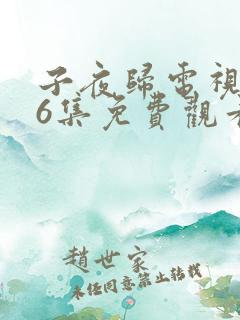 子夜歸電視
6集免費觀看
趙世家
未經同意禁止轉載